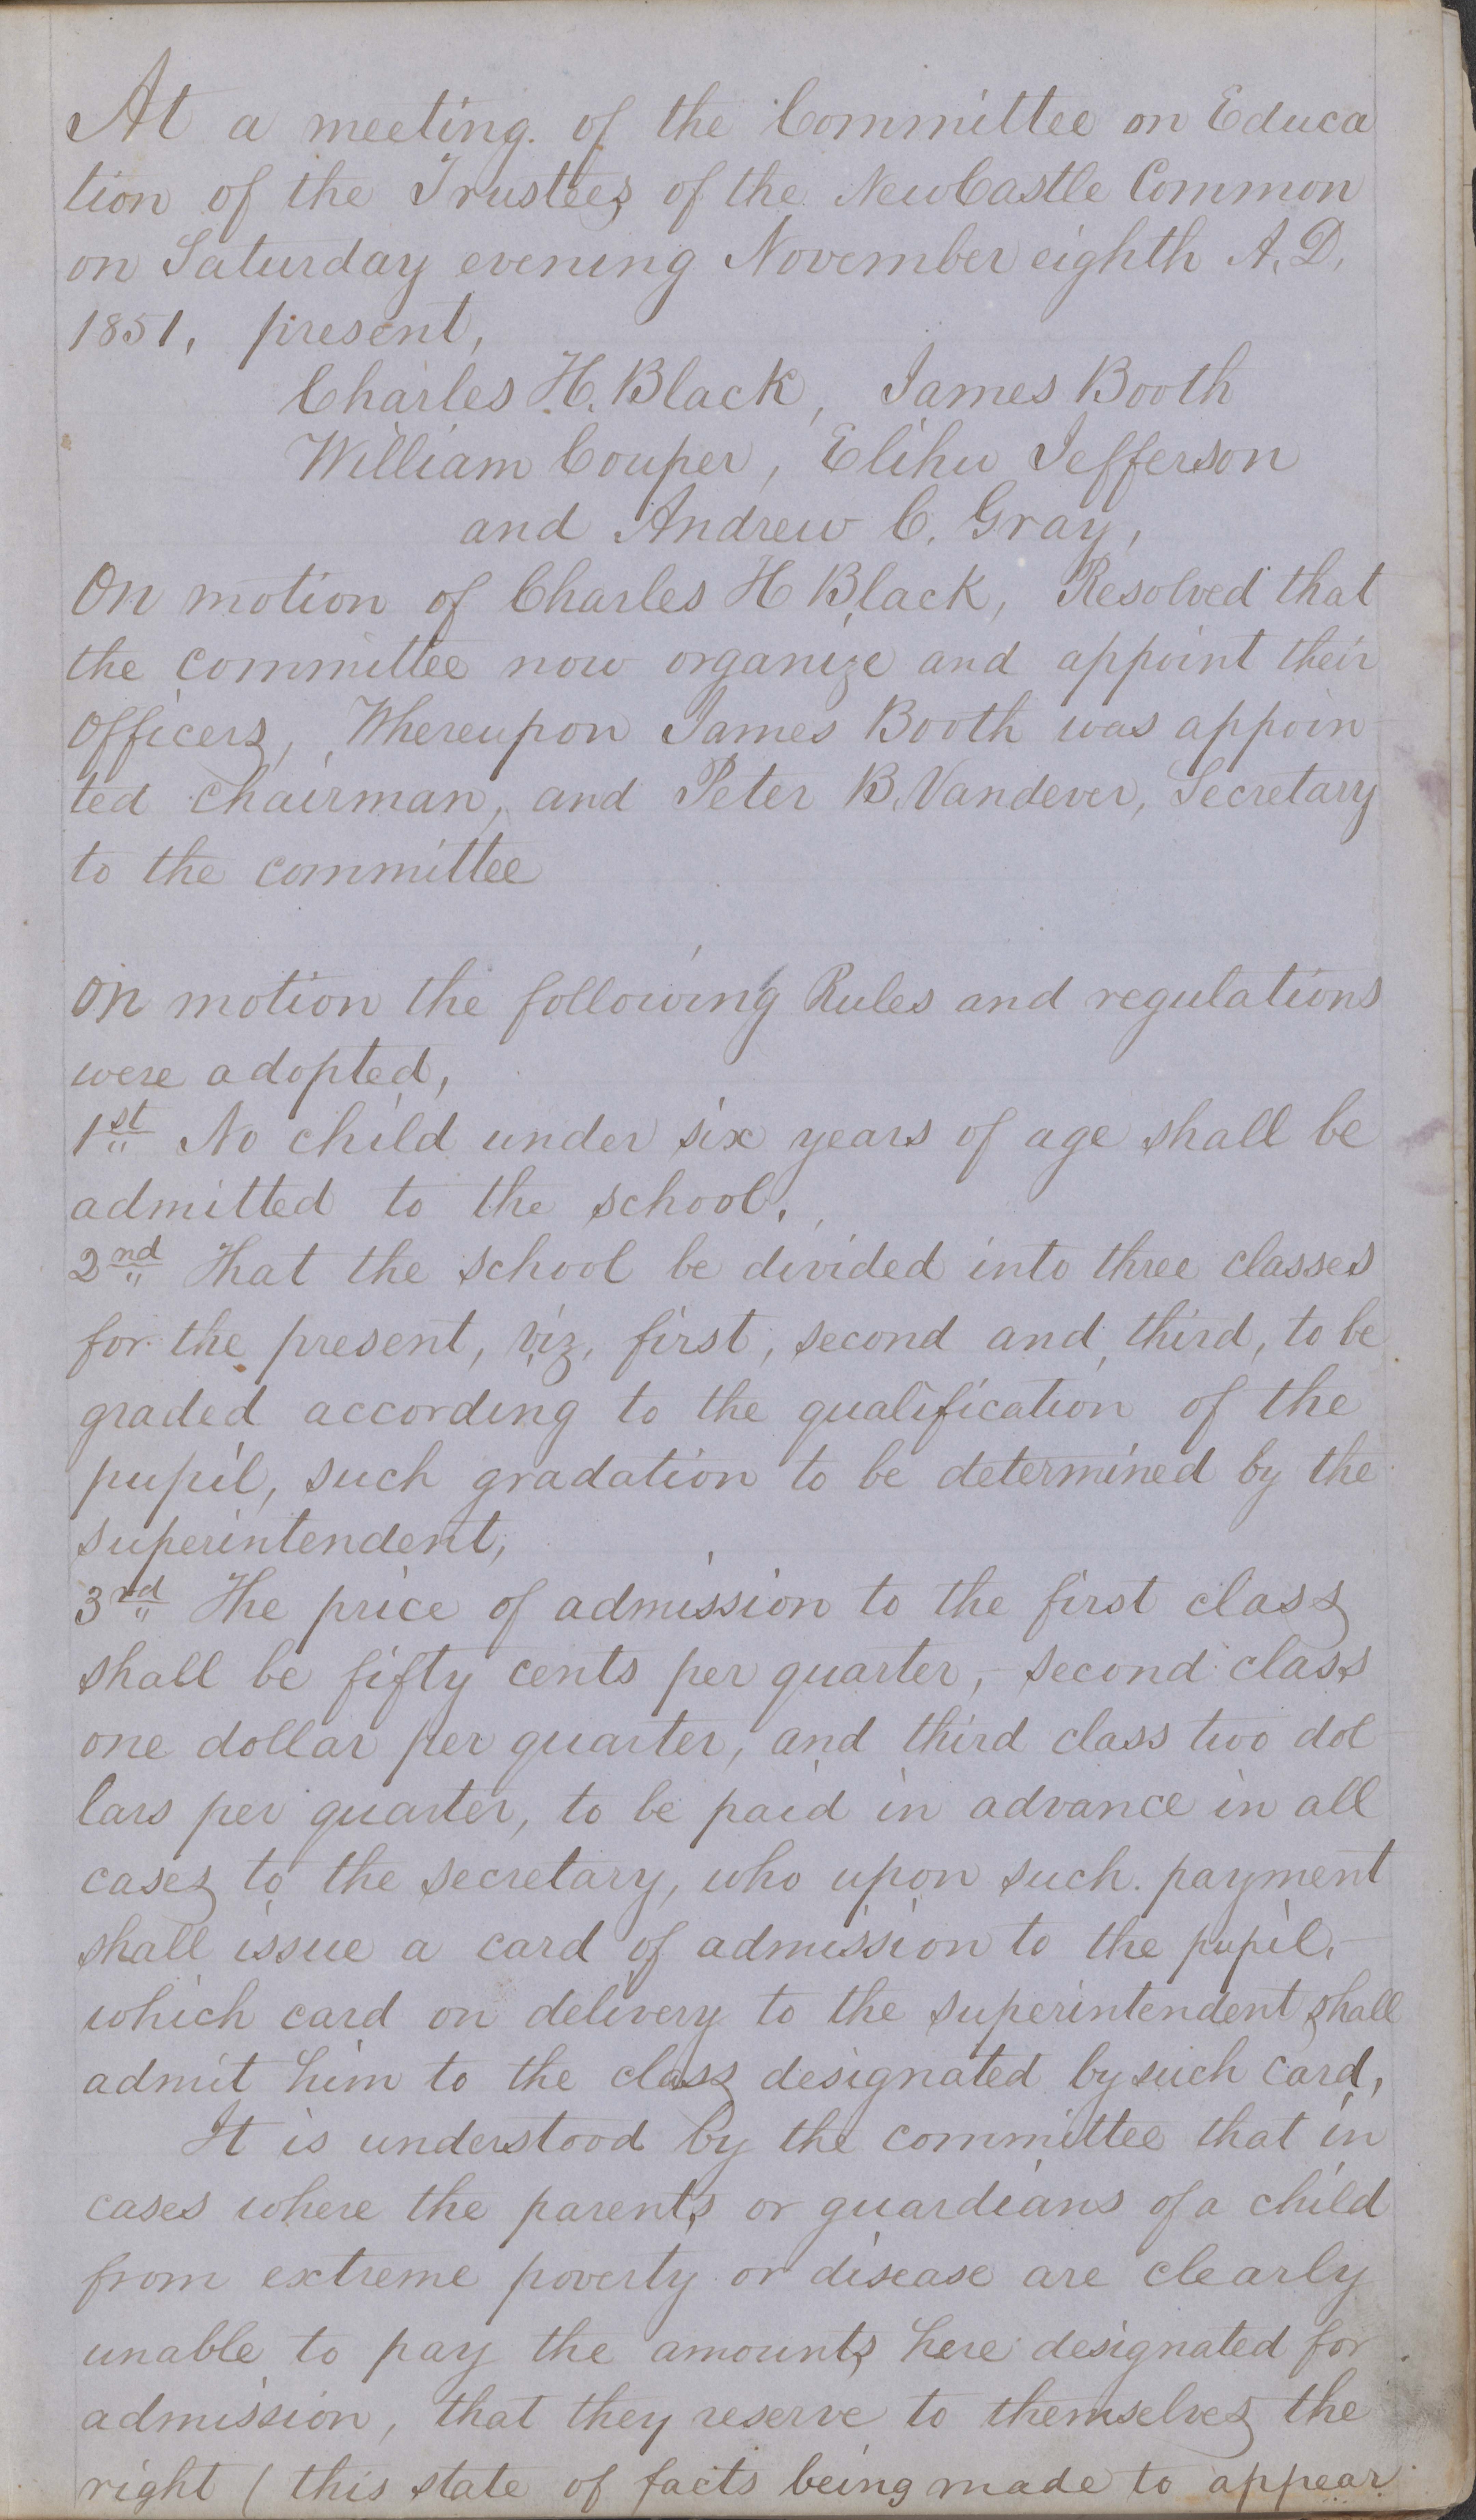 At a meeting of the Committee on Educa
tion of the Trustees of the NewCastle Common
on Saturday evening November eighth A.D.
1851, present,
Charles H. Black, James Booth
William Couper, Elihu Jefferson
and Andrew C. Gray,
On motion of Charles H Black, Resolved that
the committee now organize and appoint their
officers, Whereupon James Booth was appoin
ted chairman, and Peter B. Vandever, Secretary
to the committee
On motion the following Rules and regulations
were adopted,
1st No child under six years of age shall be
admitted to the school.
2nd That the school be divided into three classes
for the present, viz, first, second and third, to be
graded according to the qualification of the
pupil, such gradation to be determined by the
superintendent,
3rd The price of admission to the first class
shall be fifty cents per quarter, second class
one dollar per quarter, and third class two dol
lars per quarter, to be paid in advance in all
cases to the secretary, who upon such payment
shall issue a card of admission to the pupil,
which card on delivery to the superintendent shall
admit him to the class designated by such card,
It is understood by the committee that in
cases where the parents or guardians of a child
from extreme poverty or disease are clearly
unable to pay the amounts here designated for
admission, that they reserve to themselves the
right ( this state of facts being made to appear